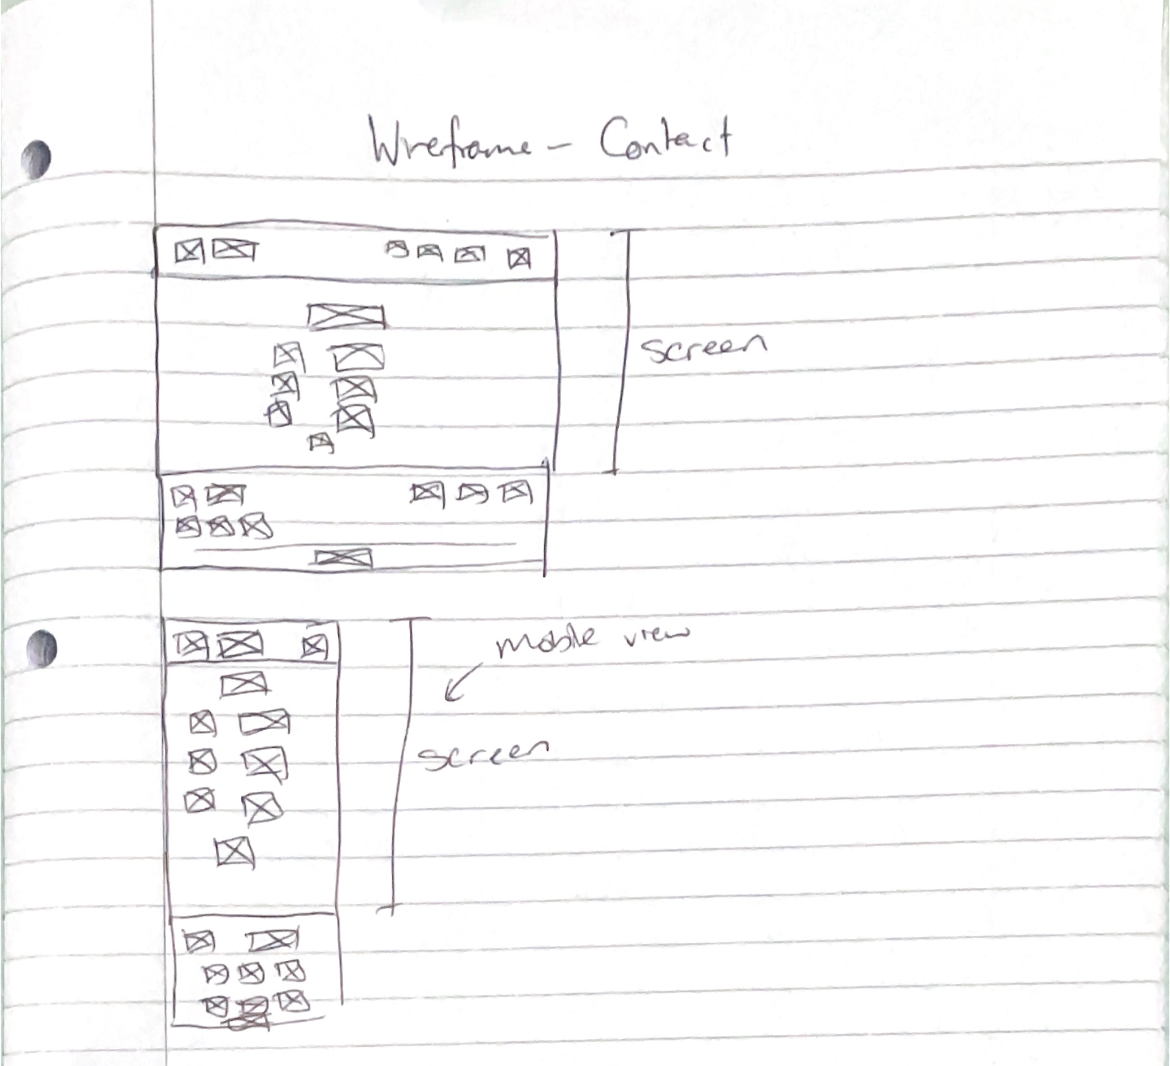 Wireframe - Contact
screen
mobile view
screen